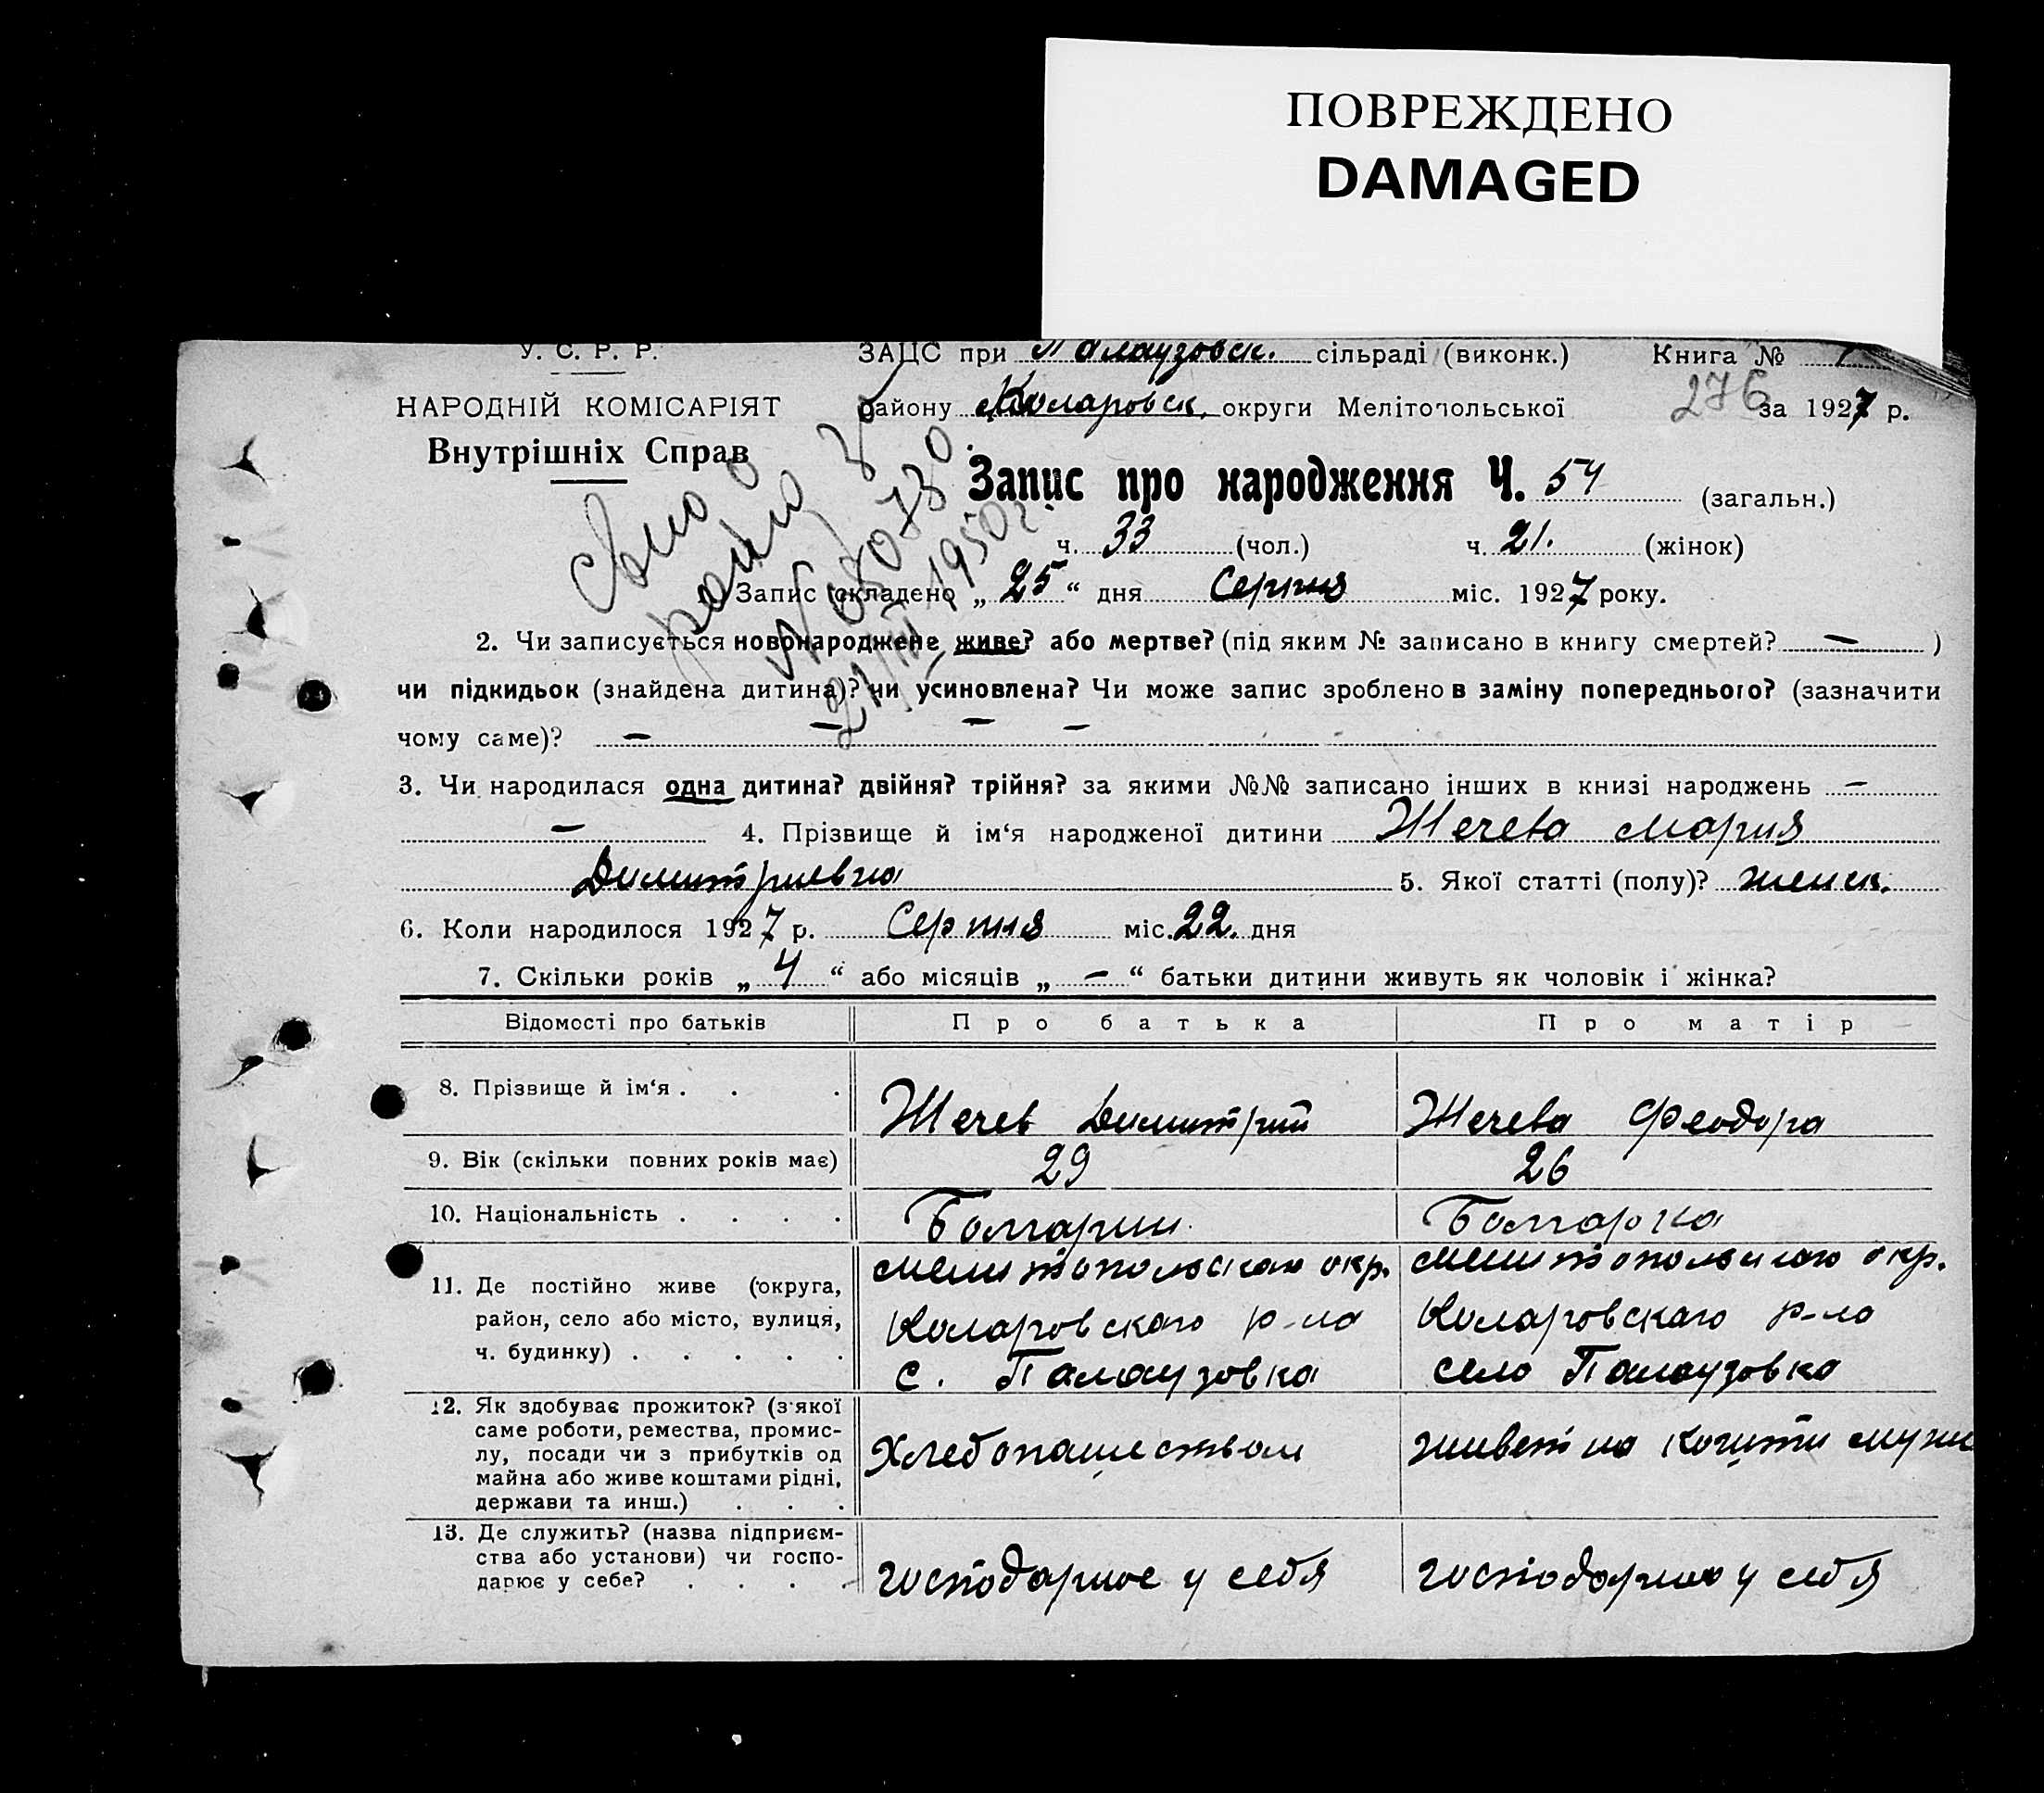 ПОВРЕЖДЕНО
DAMAGED
У. С. Р. Р.
ЗАЦС при Палаузовск. сільраді (виконк.) Книга №
НАРОДНІЙ КОМІСАРІЯТ
Внутрішніх Справ
району Коларовск. округи Мелітопольської 276 за 1927 р.
Запис про народження Ч. 54 (загальн.)
ч. 33 (чол.) ч. 21. (жінок)
Запис складено „ 25 “ дня Серпня міс. 1927 року.
1950 г.
2. Чи записується новонароджене живе? або мертве? (під яким № записано в книгу смертей? — )
чи підкидьок (знайдена дитина)? чи усиновлена? Чи може запис зроблено в заміну попереднього? (зазначити
чому саме)? — — — —
3. Чи народилася одна дитина? двійня? трійня? за якими №№ записано інших в книзі народжень —
— 4. Прізвище й ім‘я народженої дитини Жечева Мария
Димитриевна 5. Якої статті (полу)? женск.
6. Коли народилося 1927 р. Серпня міс. 22. дня
7. Скільки років „ 4 “ або місяців „ — “ батьки дитини живуть як чоловік і жінка?
Відомості про батьків Про батька Про матір
8. Прізвище й ім‘я . . . Жечев Димитрий Жечева Феодора
9. Вік (скільки повних років має) 29 26
10. Національність . . . . Болгарин. Болгарка
11. Де постійно живе (округа, район, село або місто, вулиця, ч. будинку) . . . . .
Мелитопольскаго окр. Мелитопольскаго окр.
Коларовскаго р-на Коларовскаго р-на
с. Палаузовка село Палаузовка
12. Як здобуває прожиток? (з якої
саме роботи, ремества, промис-
лу, посади чи з прибутків од
майна або живе коштами рідні,
держави та инш.) . . .
Хлебопашеством живет на кошти мужа
13. Де служить? (назва підприєм-
ства або установи) чи госпо-
дарює у себе? . . . .
господарює у себя господарює у себя